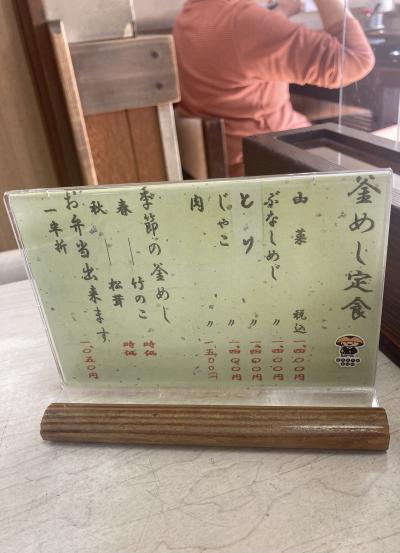 釜めし定食
山菜 税込 一、四〇〇円
ぶなしめじ 〃 一、四〇〇円
とり 〃 一、四〇〇円
じゃこ 〃 一、四〇〇円
肉 〃 一、五〇〇円
季節の釜めし
春 ― 竹のこ 時価
秋 ― 松茸 時価
お弁当出来ます
一、〇五〇円